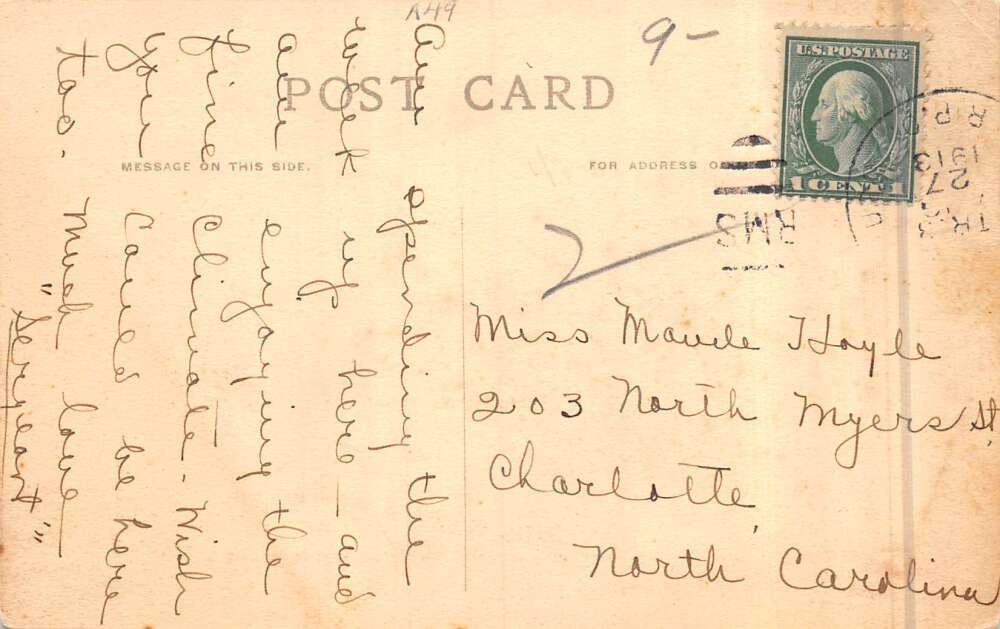 R49
9-
POST CARD
MESSAGE ON THIS SIDE.
FOR ADDRESS O
U.S. POSTAGE
1 CENT 1
TR.
27
1913
R.P.O.
RMS
Am spending the
week up here - and
am enjoying the
fine climate - Wish
you could be here
too. Much love
"Serjeant"
Miss Maude Hoyle
203 North Myers St.
Charlotte,
North Carolina